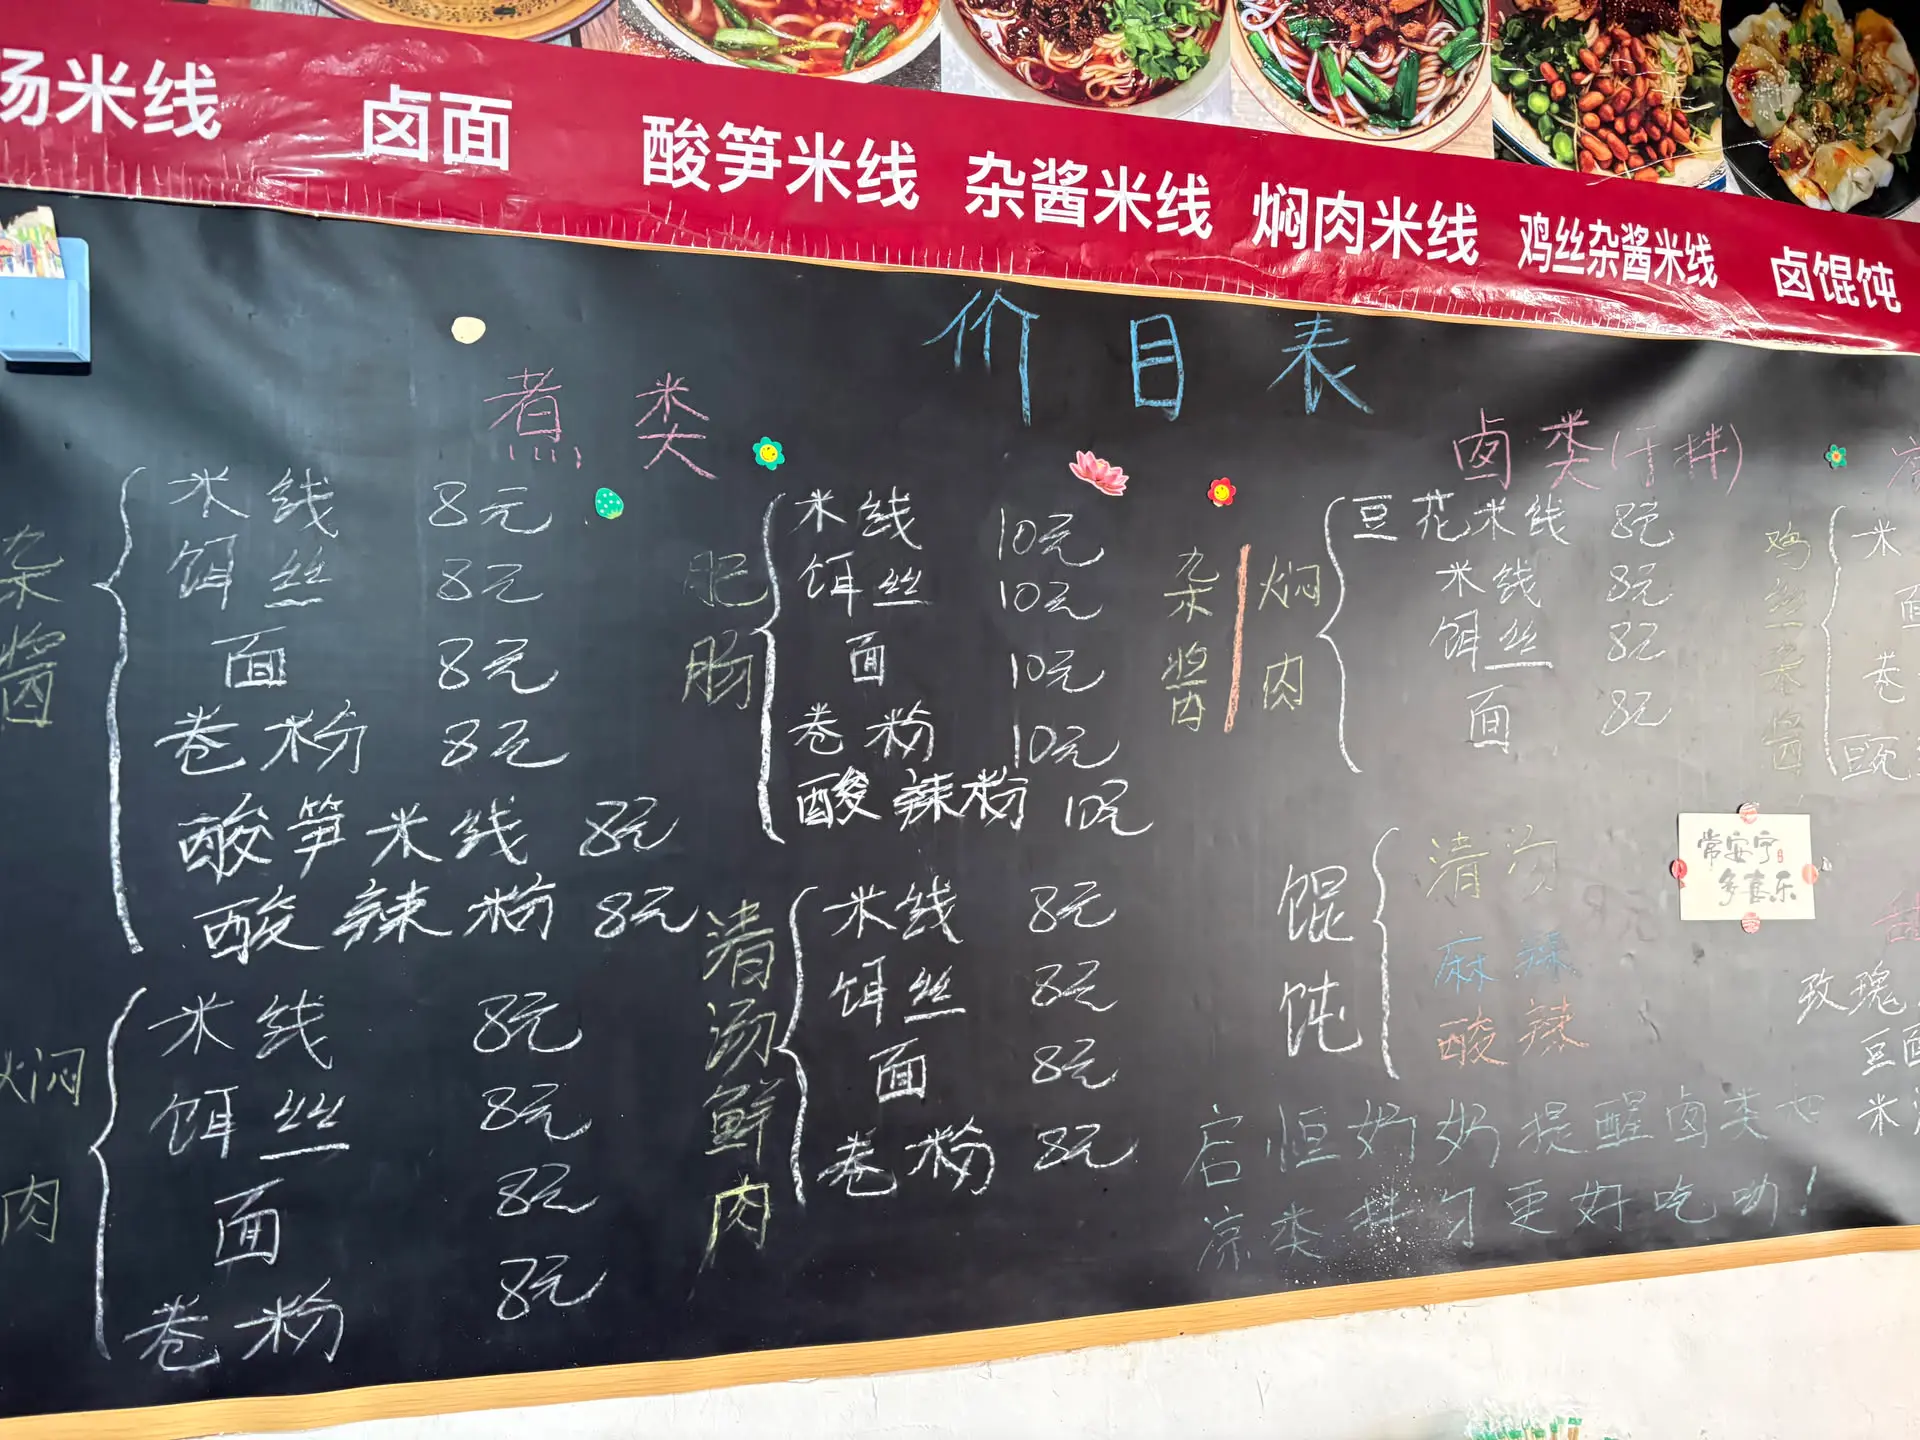 汤米线 卤面 酸笋米线 杂酱米线 焖肉米线 鸡丝杂酱米线 卤馄饨
价目表
煮类
杂酱
米线 8元
饵丝 8元
面 8元
卷粉 8元
酸笋米线 8元
酸辣粉 8元
焖肉
米线 8元
饵丝 8元
面 8元
卷粉 8元
肥肠
米线 10元
饵丝 10元
面 10元
卷粉 10元
酸辣粉 10元
清汤鲜肉
米线 8元
饵丝 8元
面 8元
卷粉 8元
卤类(干拌)
杂酱 焖肉
豆花米线 8元
米线 8元
饵丝 8元
面 8元
馄饨
清汤
麻辣 8元
酸辣
鸡丝杂酱
米
面
卷
豌
常安宁
多喜乐
玫瑰
豆面
米
启恒奶奶提醒卤类也
凉类拌匀更好吃叻!